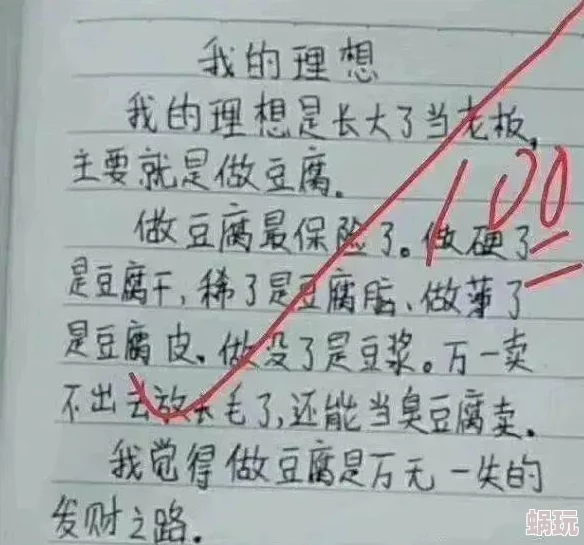 我的理想
我的理想是长大了当老板,
主要就是做豆腐.
做豆腐最保险了。做硬了
是豆腐干,稀了是豆腐脑、做薄了
是豆腐皮、做没了是豆浆。万一卖
不出去放长毛了,还能当臭豆腐卖.
我觉得做豆腐是万无一失的
发财之路.
100
蜗玩